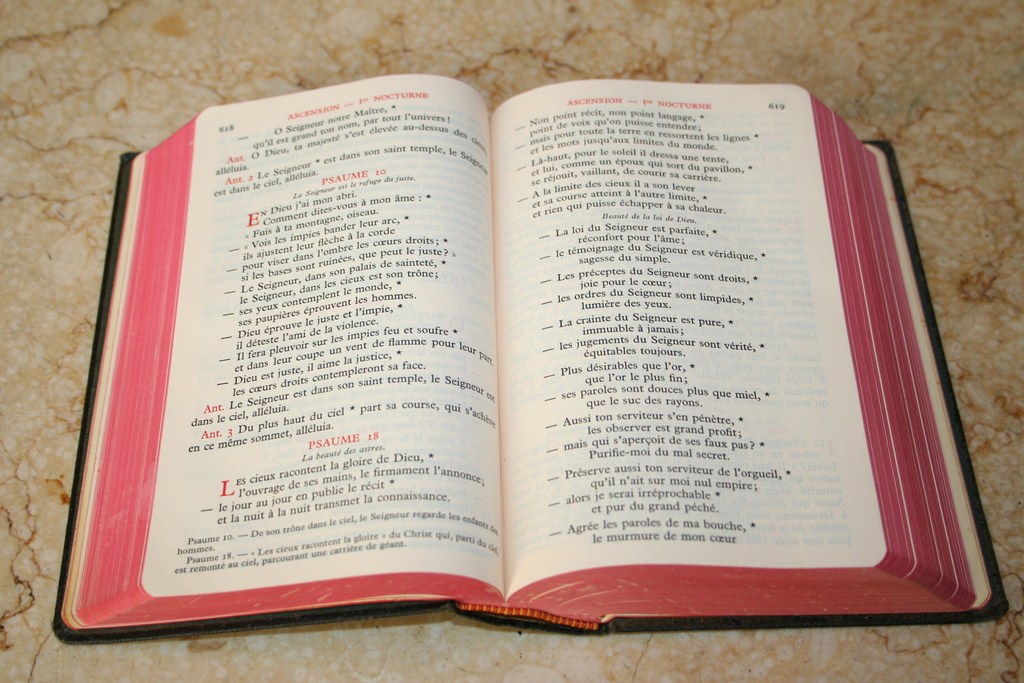 618
ASCENSION — Iᵉʳ NOCTURNE
— O Seigneur notre Maître, *
qu'il est grand ton nom, par tout l'univers !
Ant. O Dieu, ta majesté s'est élevée au-dessus des cieux
alléluia.
Ant. 2 Le Seigneur * est dans son saint temple, le Seigneur
est dans le ciel, alléluia.
PSAUME 10
Le Seigneur est le refuge du juste.
EN Dieu j'ai mon abri.
Comment dites-vous à mon âme : *
« Fuis à ta montagne, oiseau.
— « Vois les impies bander leur arc, *
ils ajustent leur flèche à la corde
— pour viser dans l'ombre les cœurs droits ; *
si les bases sont ruinées, que peut le juste ? »
— Le Seigneur, dans son palais de sainteté, *
le Seigneur, dans les cieux est son trône ;
— ses yeux contemplent le monde, *
ses paupières éprouvent les hommes.
— Dieu éprouve le juste et l'impie, *
il déteste l'ami de la violence.
— Il fera pleuvoir sur les impies feu et soufre *
et dans leur coupe un vent de flamme pour leur part.
— Dieu est juste, il aime la justice, *
les cœurs droits contempleront sa face.
Ant. Le Seigneur est dans son saint temple, le Seigneur est
dans le ciel, alléluia.
Ant. 3 Du plus haut du ciel * part sa course, qui s'achève
en ce même sommet, alléluia.
PSAUME 18
La beauté des astres.
LES cieux racontent la gloire de Dieu, *
l'ouvrage de ses mains, le firmament l'annonce ;
— le jour au jour en publie le récit *
et la nuit à la nuit transmet la connaissance.
Psaume 10. — De son trône dans le ciel, le Seigneur regarde les enfants des
hommes.
Psaume 18. — « Les cieux racontent la gloire » du Christ qui, parti du ciel,
est remonté au ciel, parcourant une carrière de géant.
ASCENSION — Iᵉʳ NOCTURNE
619
— Non point récit, non point langage, *
point de voix qu'on puisse entendre ;
— mais pour toute la terre en ressortent les lignes *
et les mots jusqu'aux limites du monde.
— Là-haut, pour le soleil il dressa une tente,
et lui, comme un époux qui sort du pavillon, *
se réjouit, vaillant, de courir sa carrière.
— A la limite des cieux il a son lever
et sa course atteint à l'autre limite, *
et rien qui puisse échapper à sa chaleur.
Beauté de la loi de Dieu.
— La loi du Seigneur est parfaite, *
réconfort pour l'âme ;
— le témoignage du Seigneur est véridique, *
sagesse du simple.
— Les préceptes du Seigneur sont droits, *
joie pour le cœur ;
— les ordres du Seigneur sont limpides, *
lumière des yeux.
— La crainte du Seigneur est pure, *
immuable à jamais ;
— les jugements du Seigneur sont vérité, *
équitables toujours.
— Plus désirables que l'or, *
que l'or le plus fin ;
— ses paroles sont douces plus que miel, *
que le suc des rayons.
— Aussi ton serviteur s'en pénètre, *
les observer est grand profit ;
— mais qui s'aperçoit de ses faux pas ? *
Purifie-moi du mal secret.
— Préserve aussi ton serviteur de l'orgueil, *
qu'il n'ait sur moi nul empire ;
— alors je serai irréprochable *
et pur du grand péché.
— Agrée les paroles de ma bouche, *
le murmure de mon cœur